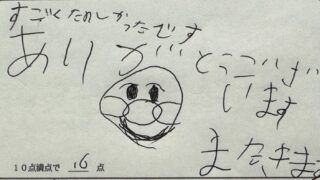 すごくたのしかったです
ありがとうござ
います
また、きます
10点満点で 16 点